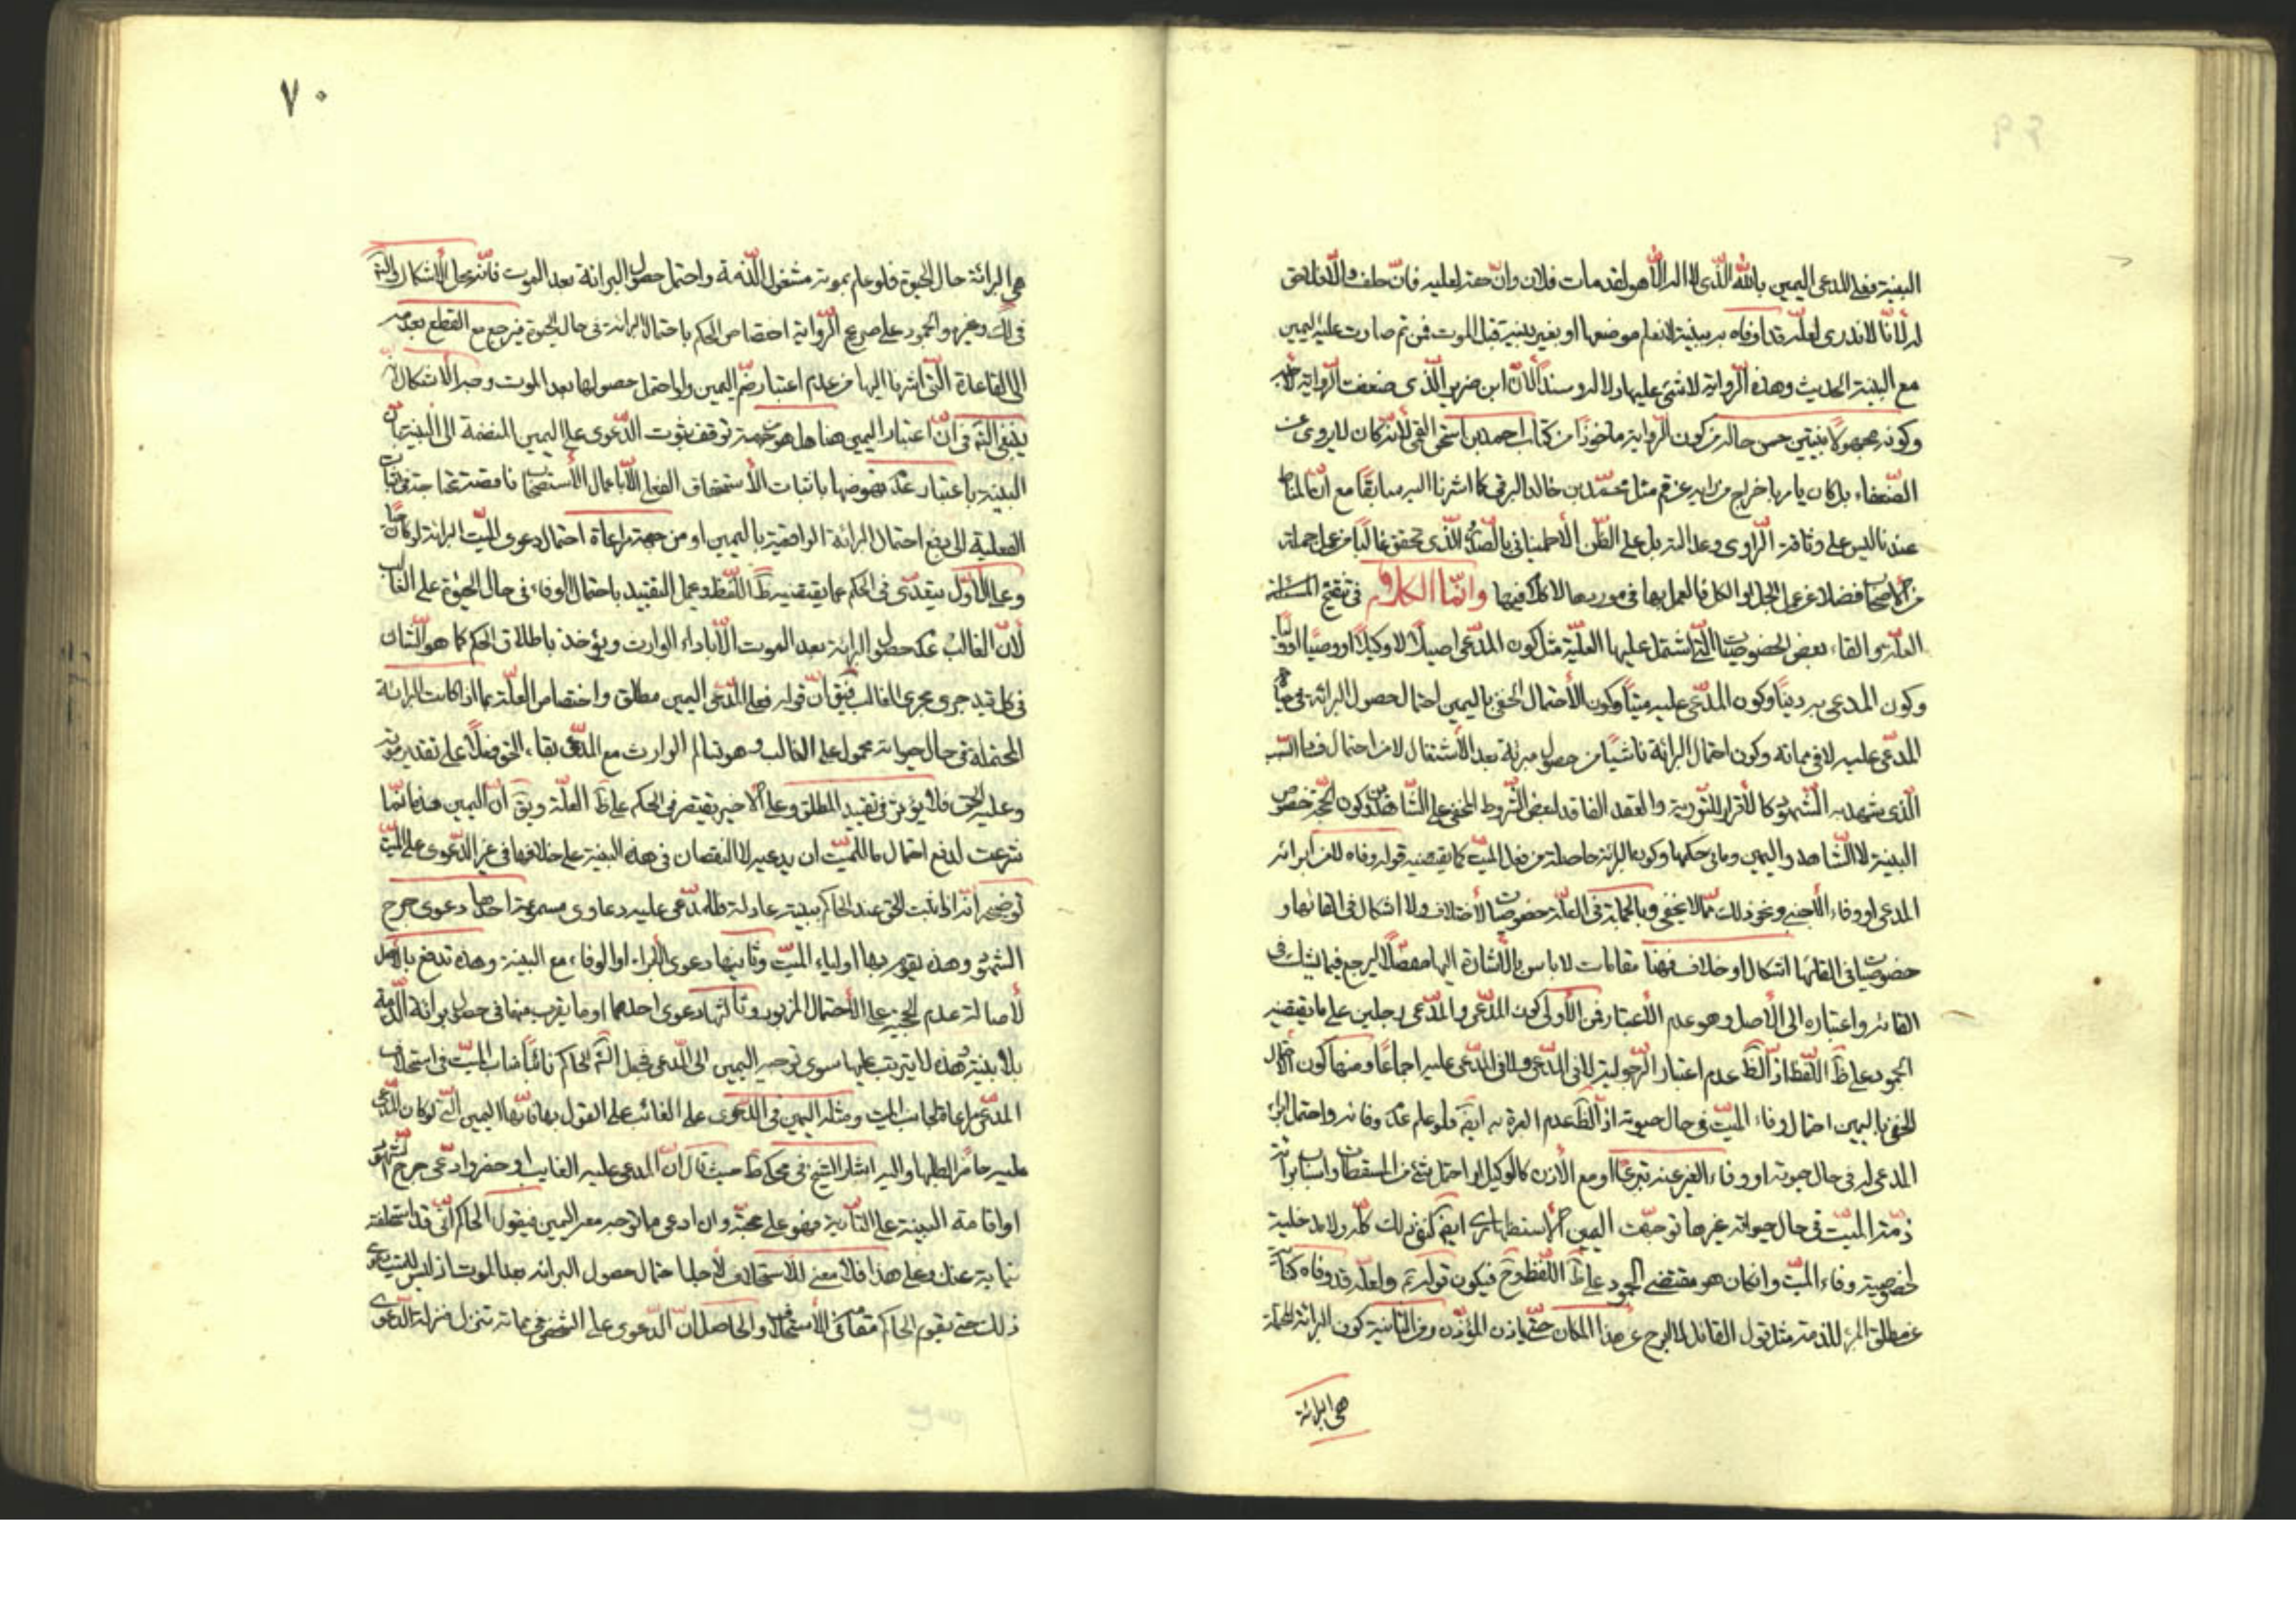 البينة فعلى المدعي اليمين بالله الذي لا اله الا هو لقد مات فلان وان حقه لعليه فان حلف والا فلا حق
له لانا لا ندري لعله قد اوفاه ببينة لا نعلم موضعها او بغير بينة قبل الموت فمن ثم صارت عليه اليمين
مع البينة الحديث وهذه الرواية لا شيء عليها دلالة وسندا لان ابن ضرير الذي ضعفت الرواية لاجله
وكونه مجهولا يتبين حسن حاله من كون الرواية ماخوذا من كتاب احمد بن اسحق القمي لانه كان لا يروي عن
الضعفاء بل كان يامر باخراج من يروي عنهم مثل محمد بن خالد البرقي كما اشرنا اليه سابقا مع ان المناط
عندنا ليس على وثاقة الراوي وعدالته بل على الظن الاطميناني بالصدور الذي تحقق غالبا من عمل جملة
من الاصحاب فضلا عن عمل الجل او الكل فالعمل بها في موردها لا كلام فيها وانما الكلام في تنقيح المسئلة
العلة والقاء بعض الخصوصيات التي اشتمل عليها العلة مثل كون المدعي اصيلا لا وكيلا او وصيا او وليا
وكون المدعى به دينا وكون المدعى عليه ميتا وكون الاحتمال المنفي باليمين احتمال حصول البرائة في حياة
المدعى عليه لا في مماته وكون احتمال البرائة ناشيا من حصول مبرئة بعد الاشتغال لا من احتمال فساد السبب
الذي شهد به الشهود كالاقرار للتورية والعقد الفاقد لبعض الشروط المخفي على الشاهدين وكون الحجة خصوص
البينة لا الشاهد واليمين وما في حكمها وكون البرائة حاصلة من فعل الميت كما يقتضيه قوله وفاه لا من ابرائه
المدعي او وفاء الاجنبي ونحو ذلك مما لا يخفى وبالجملة في العلة خصوصيات لا اختلاف ولا اشكال في الغائها و
خصوصيات في القائها اشكال او خلاف فههنا مقامات لا باس بالاشارة اليها مفصلا ليرجع فيما يشك في
القائه واعتباره الى الاصل وهو عدم الاعتبار فمن الاولى كون المدعي والمدعى رجلين على ما يقتضيه
الجمود على ظ اللفظ اذ الظ عدم اعتبار الرجولية لا في المدعي ولا في المدعى عليه اجماعا ومنها كون احتمال
المنفي باليمين احتمال وفاء الميت في حال حيوته اذ الظ عدم العبرة به ايضا فلو علم عدم وفائه واحتمل ابراء
المدعي له في حال حيوته او وفاء الغير عنه تبرعا او مع الاذن كالوكيل او احتمل شيء من المسقطات واسباب برائة
ذمة الميت في حال حيواته غيرها توجهت اليمين الاستظهاري ايضا لكفى ذلك كله ولا مدخلية
لخصوصية وفاء الميت وان كان هو مقتضى الجمود على ظ اللفظ وح فيكون قوله ثم ولعله قد وفاه كناية
عن مطلق المبرء للذمة مثل قول القائل لا ابرح عن هذا المكان حتى ياذن المؤذن ومن الثانية كون البرائة المحتملة
هي البرائة
٧٠
هي البرائة حال الحيوة فلو علم بموته مشغول الذمة واحتمل حصول البرائة بعد الموت فانه محل الاشكال والتامل
في ذلك وغيره والجمود على صريح الرواية اختصاص الحكم باحتمال البرائة في حال الحيوة فيرجع مع القطع بعدمه
الى القاعدة التي اشرنا اليها من عدم اعتبار ضم اليمين ولو احتمل حصولها بعد الموت وجه الاشكال انه
ينبغي التامل في ان اعتبار اليمين هنا هل هو من جهة توقف ثبوت الدعوى على اليمين المنضمة الى البينة لان
البينة باعتبار عدم نهوضها باثبات الاستحقاق الفعلي الا باعمال الاستصحاب ناقصة تحتاج في اثبات
الفعلية الى دفع احتمال البرائة الواقعية باليمين او من جهة مراعاة احتمال دعوى الميت البرائة لو كان حيا
وعلى الاول يتعدى في الحكم عما يقتضيه ظ اللفظ وعمل التقييد باحتمال الوفاء في حال الحيوة على الغالب
لان الغالب عدم حصول البرائة بعد الموت الا باداء الوارث ويؤخذ باطلاق الحكم كما هو الشان
في كل قيد جرى مجرى الغالب فيق ان قوله فعلى المدعي اليمين مطلق واختصاص العلة بما اذا كانت البرائة
المحتملة في حال حيوته محمول على الغالب وهو تسالم الوارث مع المدعي بقاء الحق فعلا على تقدير موته
وعليه الحق فلا يؤثر في تقييد المطلق وعلى الاخير يقتصر في الحكم على ظ العلة ويق ان اليمين هنا انما
شرعت لدفع احتمال ما للميت ان يدعيه لا لنقصان في هذه البينة على خلافها في غير الدعوى على الميت
توضيحه انه اذا ثبت الحق عند الحاكم ببينة عادلة فللمدعى عليه دعاوى مسموعة احدها دعوى جرح
الشهود وهذه يقوم بها اولياء الميت وثانيها دعوى الابراء او الوفاء مع البينة وهذه تدفع بالاصل
لاصالة عدم الحجية على الاحتمال المزبور وثالثها دعوى احدهما او ما يقرب منها في حصول برائة الذمة
بلا بينة وهذه لا يترتب عليها سوى توجيه اليمين الى المدعي فجعل الشارع الحاكم نائبا مناب الميت في استحلاف
المدعي مراعاة لجانب الميت ومثله اليمين في الدعوى على الغائب على القول بها فانها اليمين التي لو كان المدعى
عليه حاضرا لطلبها واليه اشار الشيخ في محكي ط حيث قال ان المدعى عليه الغايب لو حضر وادعى جرح الشهود
او اقامة البينة على التادية فهو على حجته وان ادعى ما توجه معه اليمين فيقول الحاكم اني قد استحلفته
نيابة عنك وعلى هذا فلا معنى للاستحلاف لاجل احتمال حصول البرائة بعد الموت اذ ليس للميت دعوى
ذلك حتى يقوم الحاكم مقامه في الاستحلاف والحاصل ان الدعوى على الشخص في مماته تنزل منزلة الدعوى